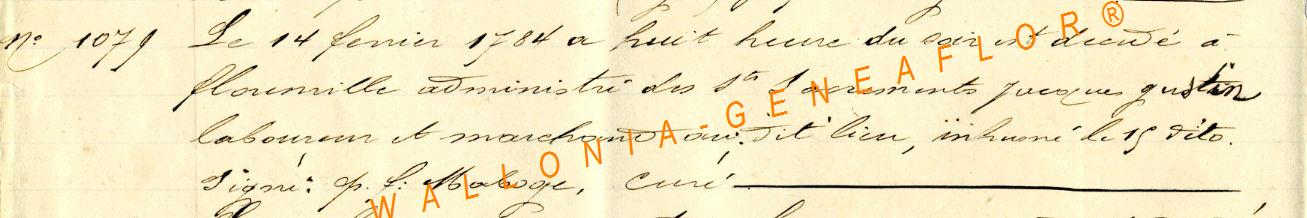 N° 1079 Le 14 fevrier 1784 a huit heure du soir est decedé à
florenville administré des Sts Sacrements jacques gustin
laboureur et marchand au dit lieu, inhumé le 15 dito.
Signé: p. f. Maboge, curé
WALLONIA-GENEAFLOR®